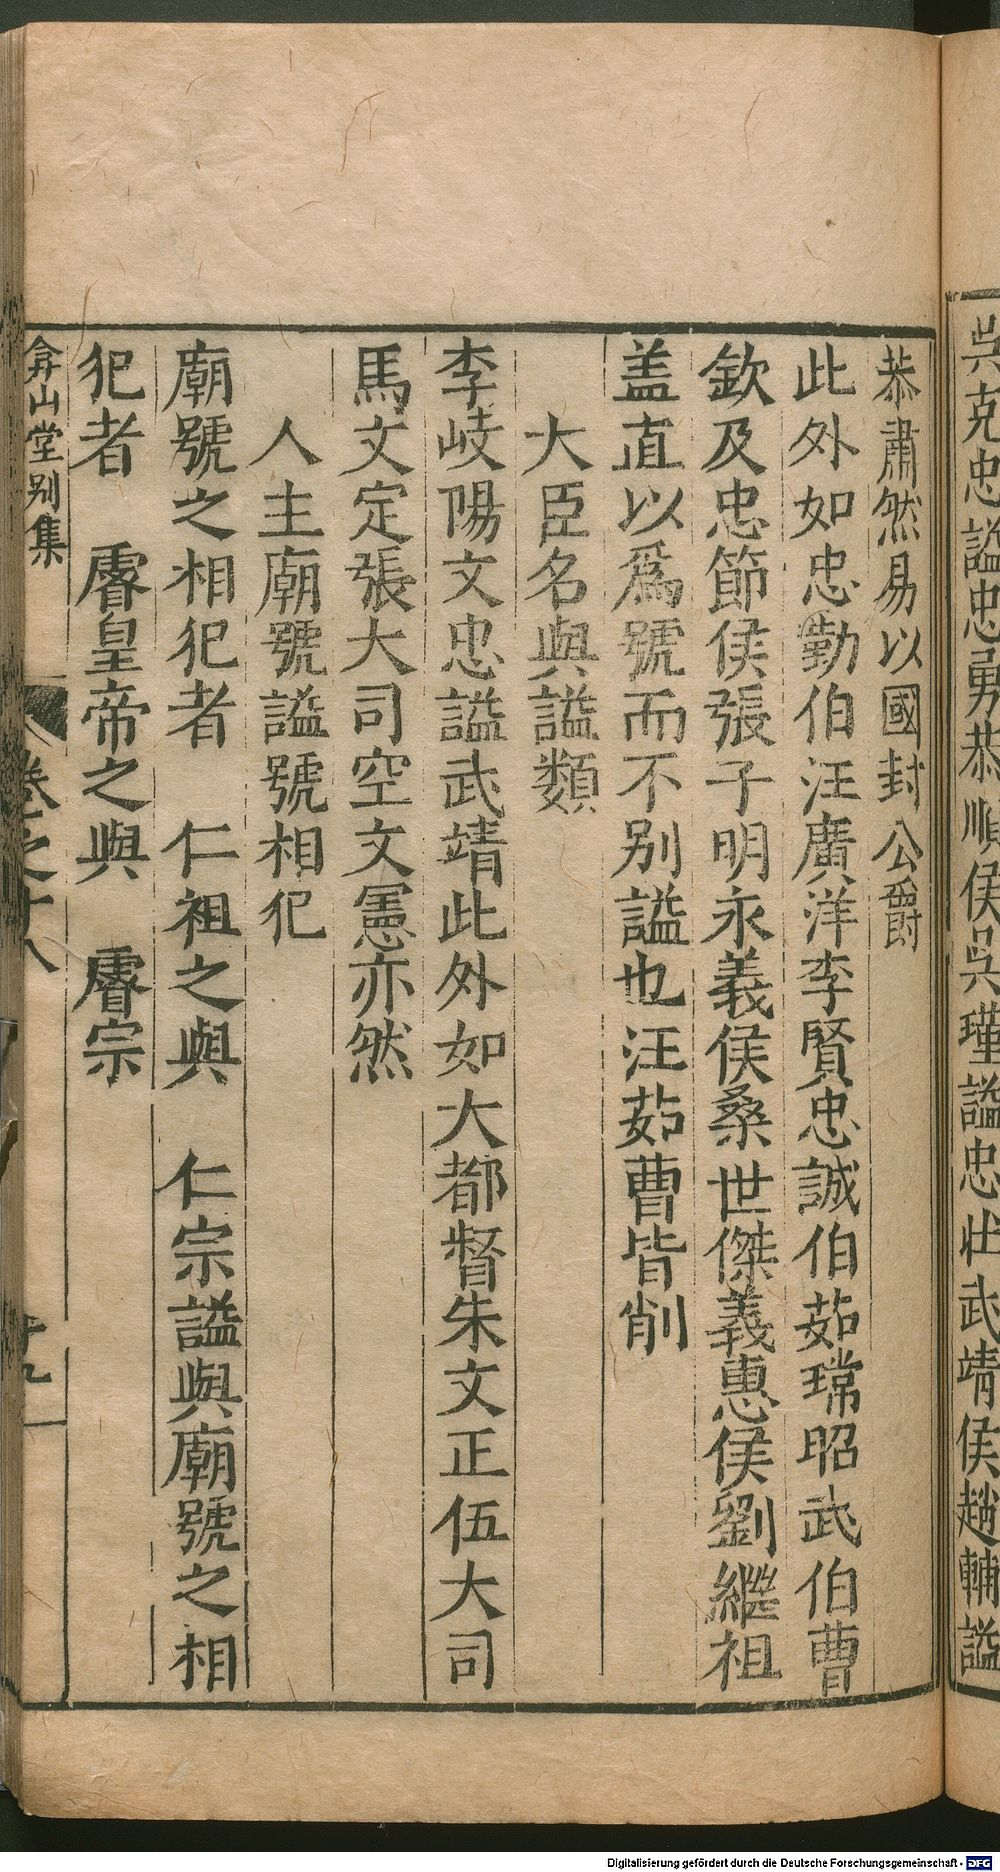 吳克忠謚忠勇恭順侯吳瑾謚忠壯武靖侯趙輔謚
恭肅然易以國封公爵
此外如忠勤伯汪廣洋李賢忠誠伯茹瑺昭武伯曹
欽及忠節侯張子明永義侯桑世傑義惠侯劉繼祖
盖直以爲號而不别謚也汪茹曹皆削
大臣名與謚類
李岐陽文忠謚武靖此外如大都督朱文正伍大司
馬文定張大司空文憲亦然
人主廟號謚號相犯
廟號之相犯者 仁祖之與 仁宗謚與廟號之相
犯者 睿皇帝之與 睿宗
弇山堂别集
卷之十八
十九
Digitalisierung gefördert durch die Deutsche Forschungsgemeinschaft - DFG